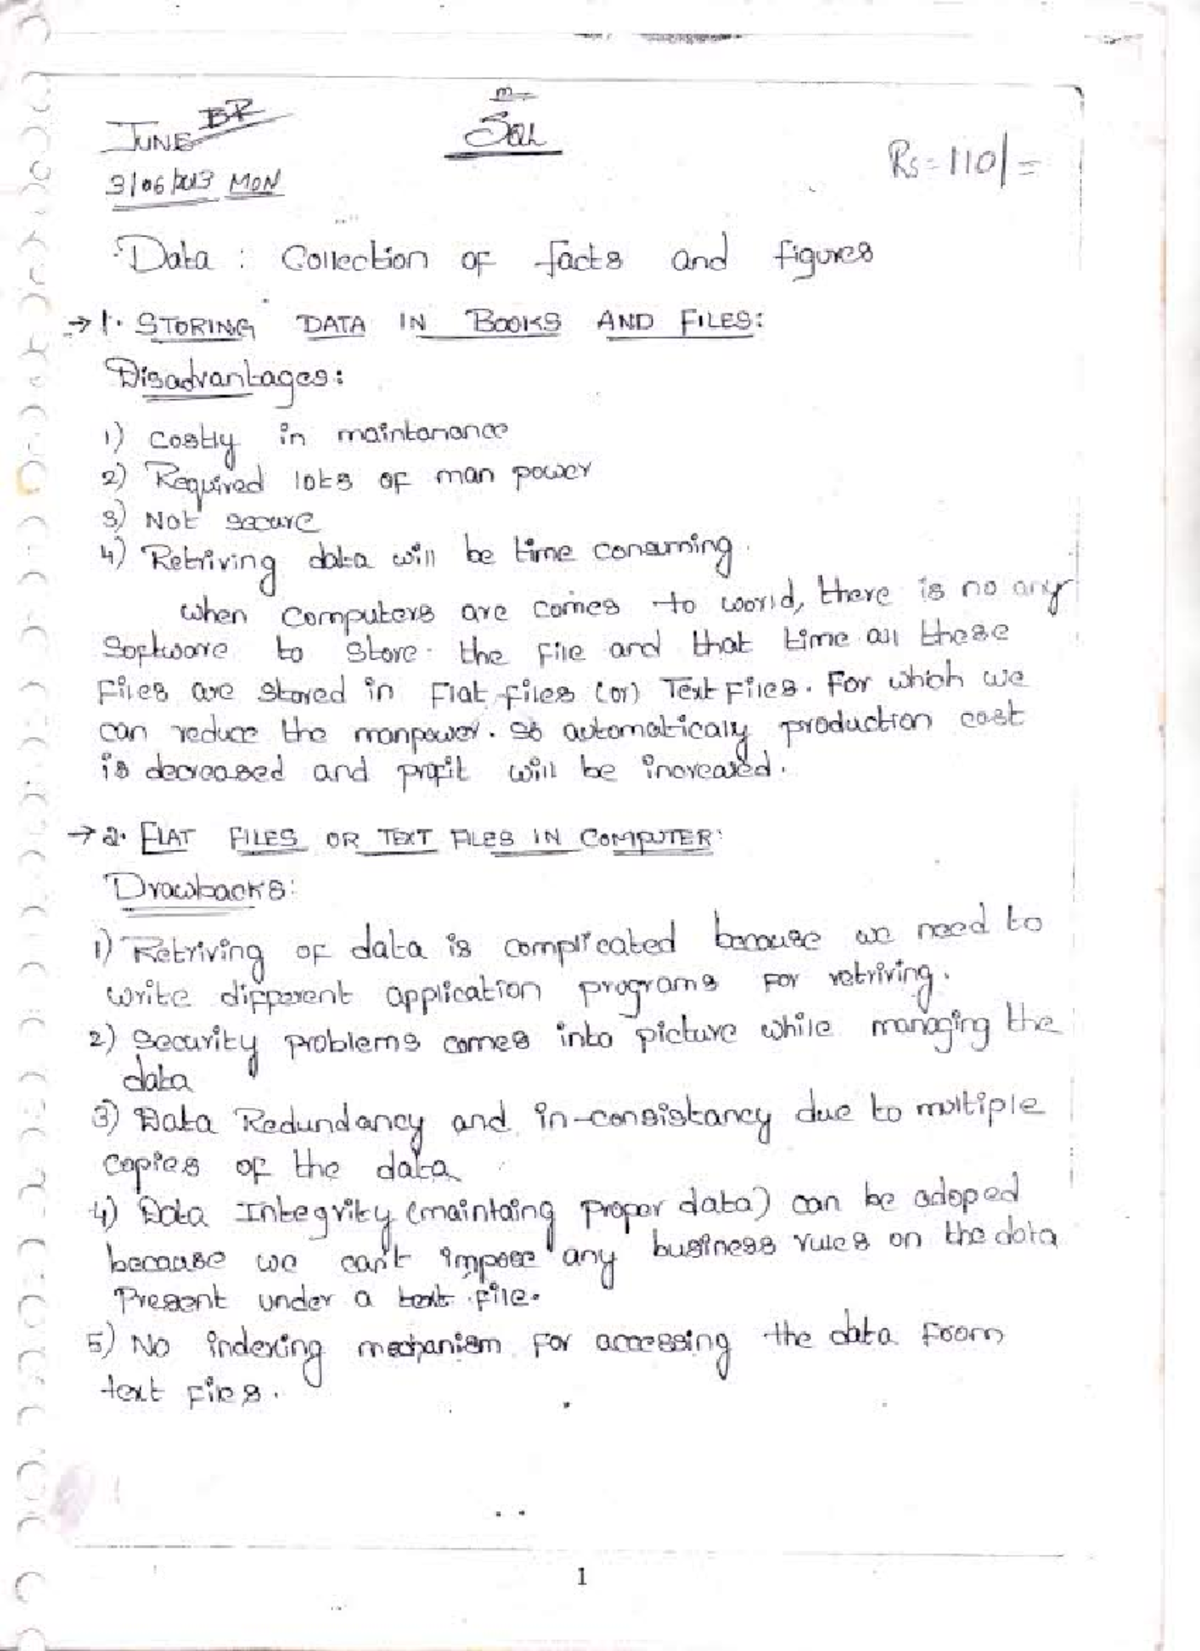 JUNE BR
SQL
Rs = 110/=
3/06/2013 MON
Data : Collection of facts and figures
→ 1. STORING DATA IN BOOKS AND FILES:
Disadvantages:
1) Costly in maintanance
2) Required lots of man power
3) Not secure
4) Retriving data will be time consuming.
when computers are comes to world, there is no any
Software to store the file and that time all these
files are stored in Flat files (or) Text Files. For which we
can reduce the manpower. So automaticaly production cost
is decreased and profit will be increased.
→ 2. FLAT FILES OR TEXT FILES IN COMPUTER:
Drawbacks:
1) Retriving of data is complicated because we need to
write different application programs for retriving.
2) Security problems comes into picture while managing the
data
3) Data Redundancy and in-consistancy due to multiple
copies of the data
4) Data Integrity (maintaing proper data) can be adoped
because we can't impose any business rules on the data
Present under a text file.
5) No indexing mechanism for accessing the data from
text files.
1